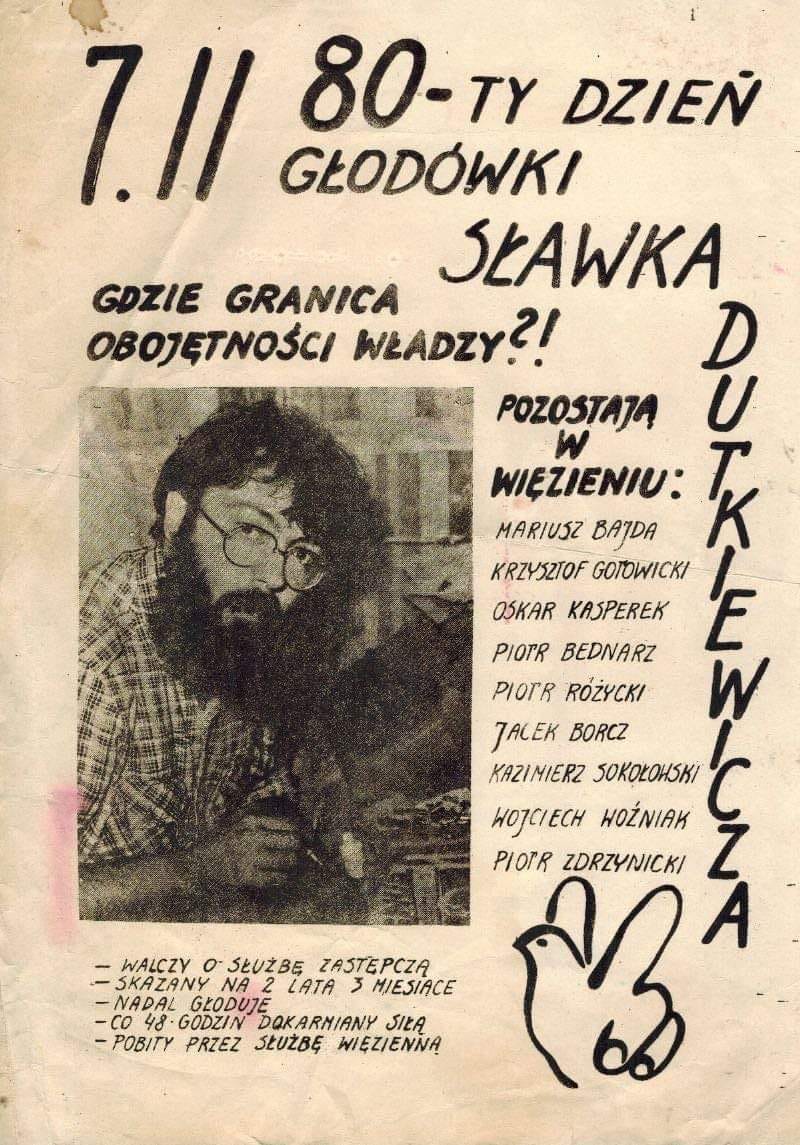 7.II 80-TY DZIEŃ
GŁODÓWKI
SŁAWKA
DUTKIEWICZA
GDZIE GRANICA
OBOJĘTNOŚCI WŁADZY?!
POZOSTAJĄ
W
WIĘZIENIU:
MARIUSZ BAJDA
KRZYSZTOF GOTOWICKI
OSKAR KASPEREK
PIOTR BEDNARZ
PIOTR RÓŻYCKI
JACEK BORCZ
KAZIMIERZ SOKOŁOWSKI
WOJCIECH WOŹNIAK
PIOTR ZDRZYNICKI
– WALCZY O SŁUŻBĘ ZASTĘPCZĄ
– SKAZANY NA 2 LATA 3 MIESIĄCE
– NADAL GŁODUJE
– CO 48 GODZIN DOKARMIANY SIŁĄ
– POBITY PRZEZ SŁUŻBĘ WIĘZIENNĄ